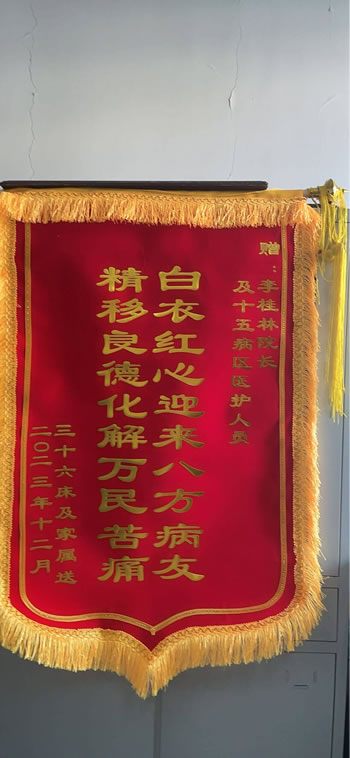 赠：李桂林院长
及十五病区医护人员
白衣红心迎来八方病友
精移良德化解万民苦痛
三十六床及家属送
二〇二三年十二月